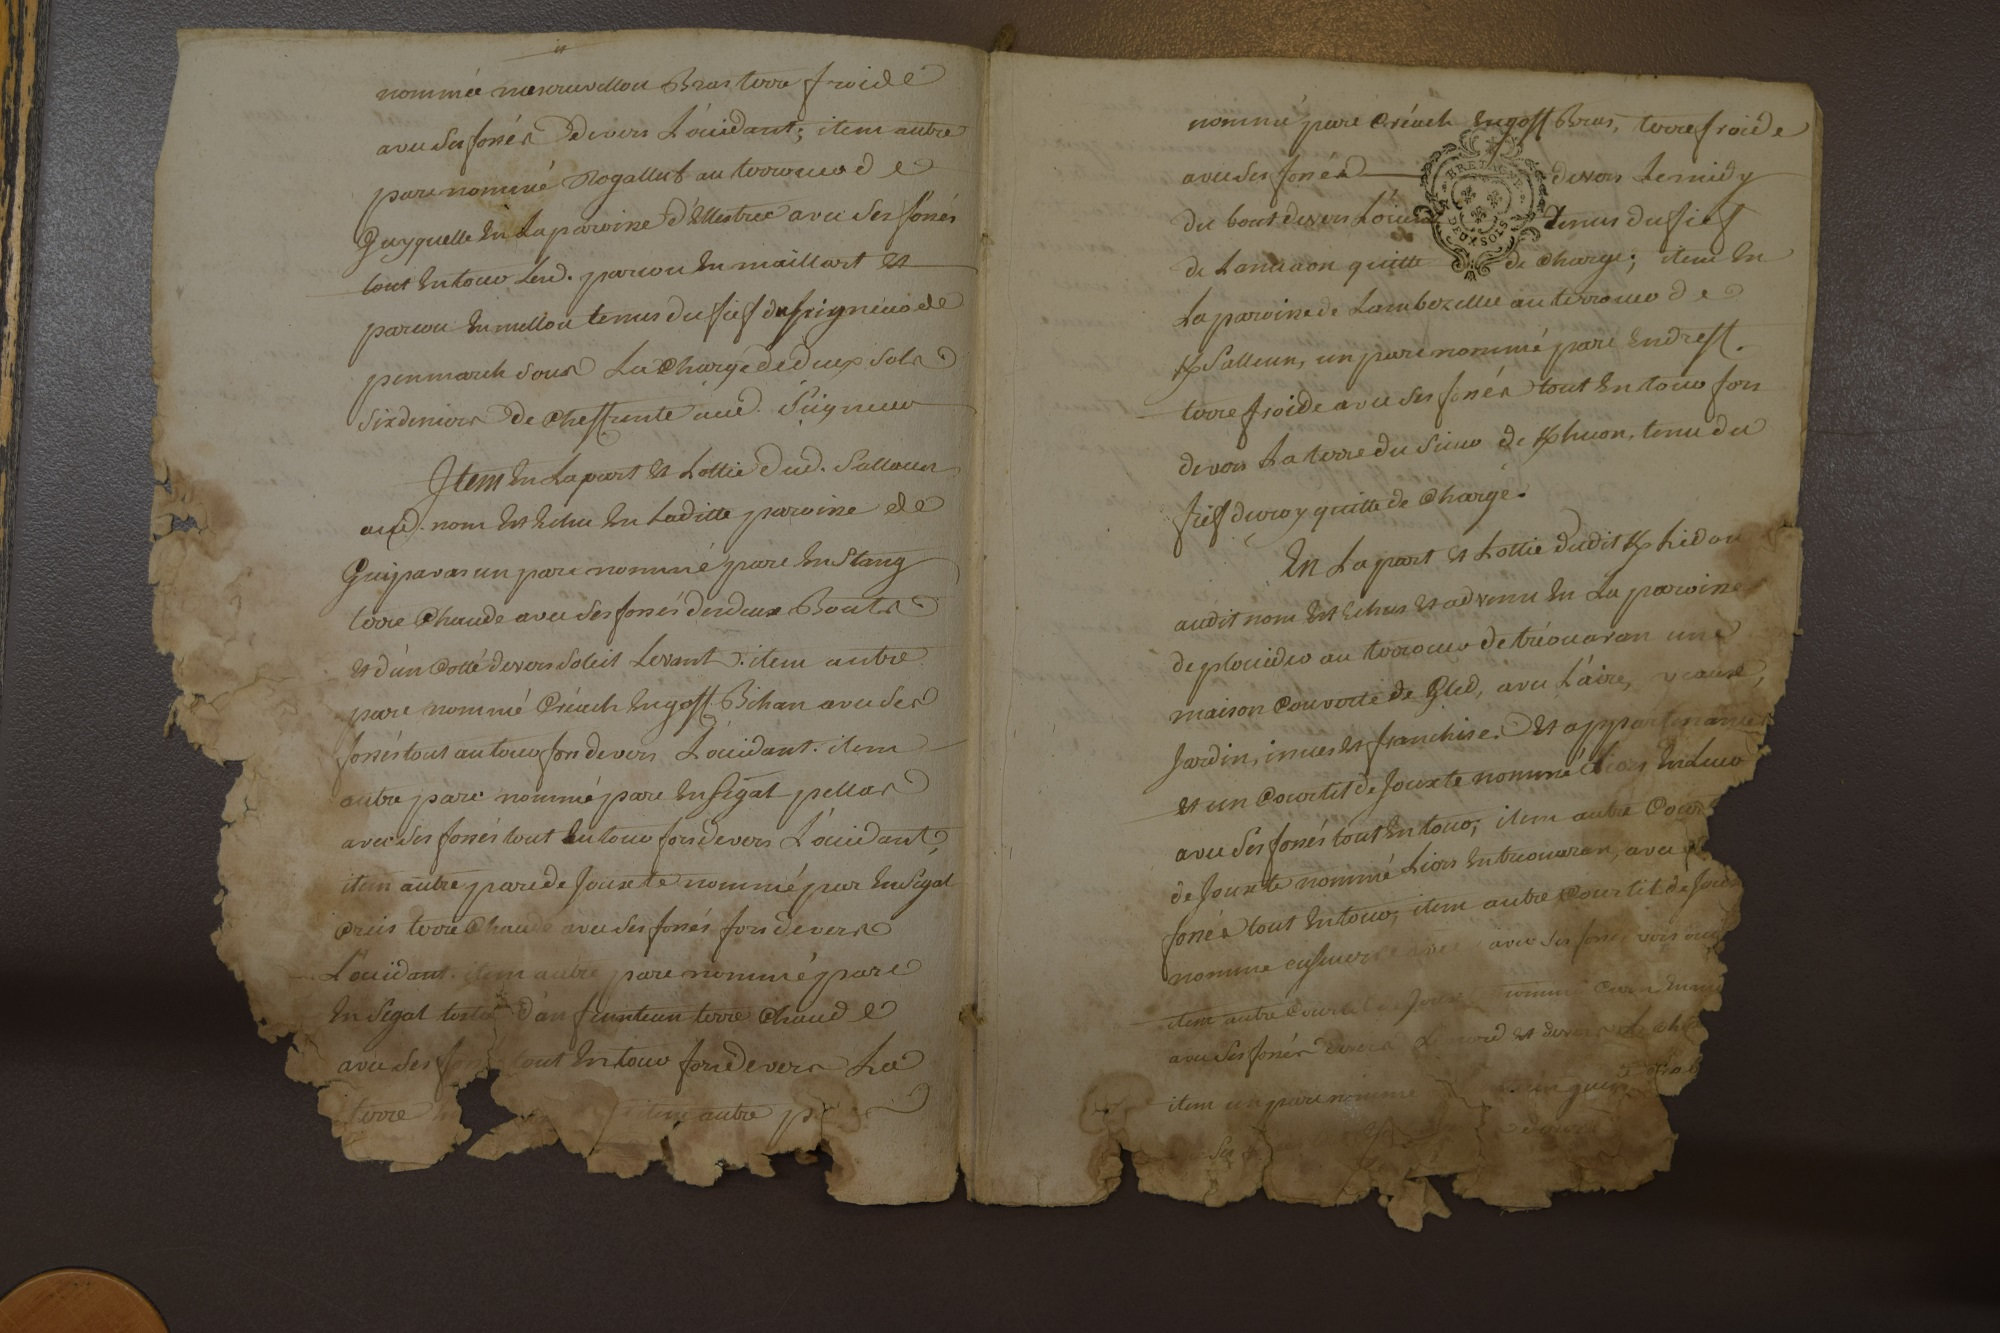 nommée mesnuvellou Bras terre froide
avec ses fossés devers L'occidant; item autre
parc nommé Rogalleut au terrouer de
Guyquelle En La paroisse d'Ellestrec avec ses fossés
tout Entour Led. parcou En maillart Et
parcou En mellou tenus du fief du seigneur de
penmarch sous La Charge de deux sols
six deniers de Cheffrente aud. Seigneur
Item En La part Et Lottie Dud. Sallaun
aud. nom Est Echu En Laditte paroisse de
Guipavas un parc nommé parc En Stang
terre Chaude avec ses fossés des deux Bouts
Et d'un Cotté devers Soleil Levant. item autre
parc nommé Créach Engoff Bihan avec ses
fossés tout autour fors devers L'occidant. item
autre parc nommé parc En segal pellas
avec ses fossés tout Entour fors devers L'occidant,
item autre parc de Jouxte nommé parc En Segal
Creis terre Chaude avec ses fossés fors devers
L'occidant. item autre parc nommé parc
En Segal tosta d'an feunteun terre Chaude
avec ses fossés tout Entour fors devers La
terre item autre
nommé parc Créach Engoff Bras, terre froide
avec ses fossés devers Le midy
du bout devers tenus du fief
BRETAGNE
DEUX SOLS
de Lanuaon quitte de Charge; item En
La paroisse de Lambezellec au terrouer de
Kсalleun, un parc nommé parc Endreff.
terre froide avec ses fossés tout Entour fors
devers La terre du Sieur de Khuon, tenu du
fief du roy quitte de Charge.
En La part Et Lottie dudit Khidou
audit nom Est Echus Et advenu En La paroisse
de plouider au terrouer de tréouaran une
maison Couverte de Gled, avec L'aire,
Jardin, issues Et franchise. Et appartenances
Et un Courtil de Jouxte nommé Liors En Leur
avec ses fossés tout Entour; item autre
de Jouxte nommé Liors Entreouaran, avec
fossés tout Entour; item autre Courtil de
nomme avec ses fossés vers
item autre Courtil de Jouxte nommé
avec ses fossés devers Le nord Et devers
item un parc nommé